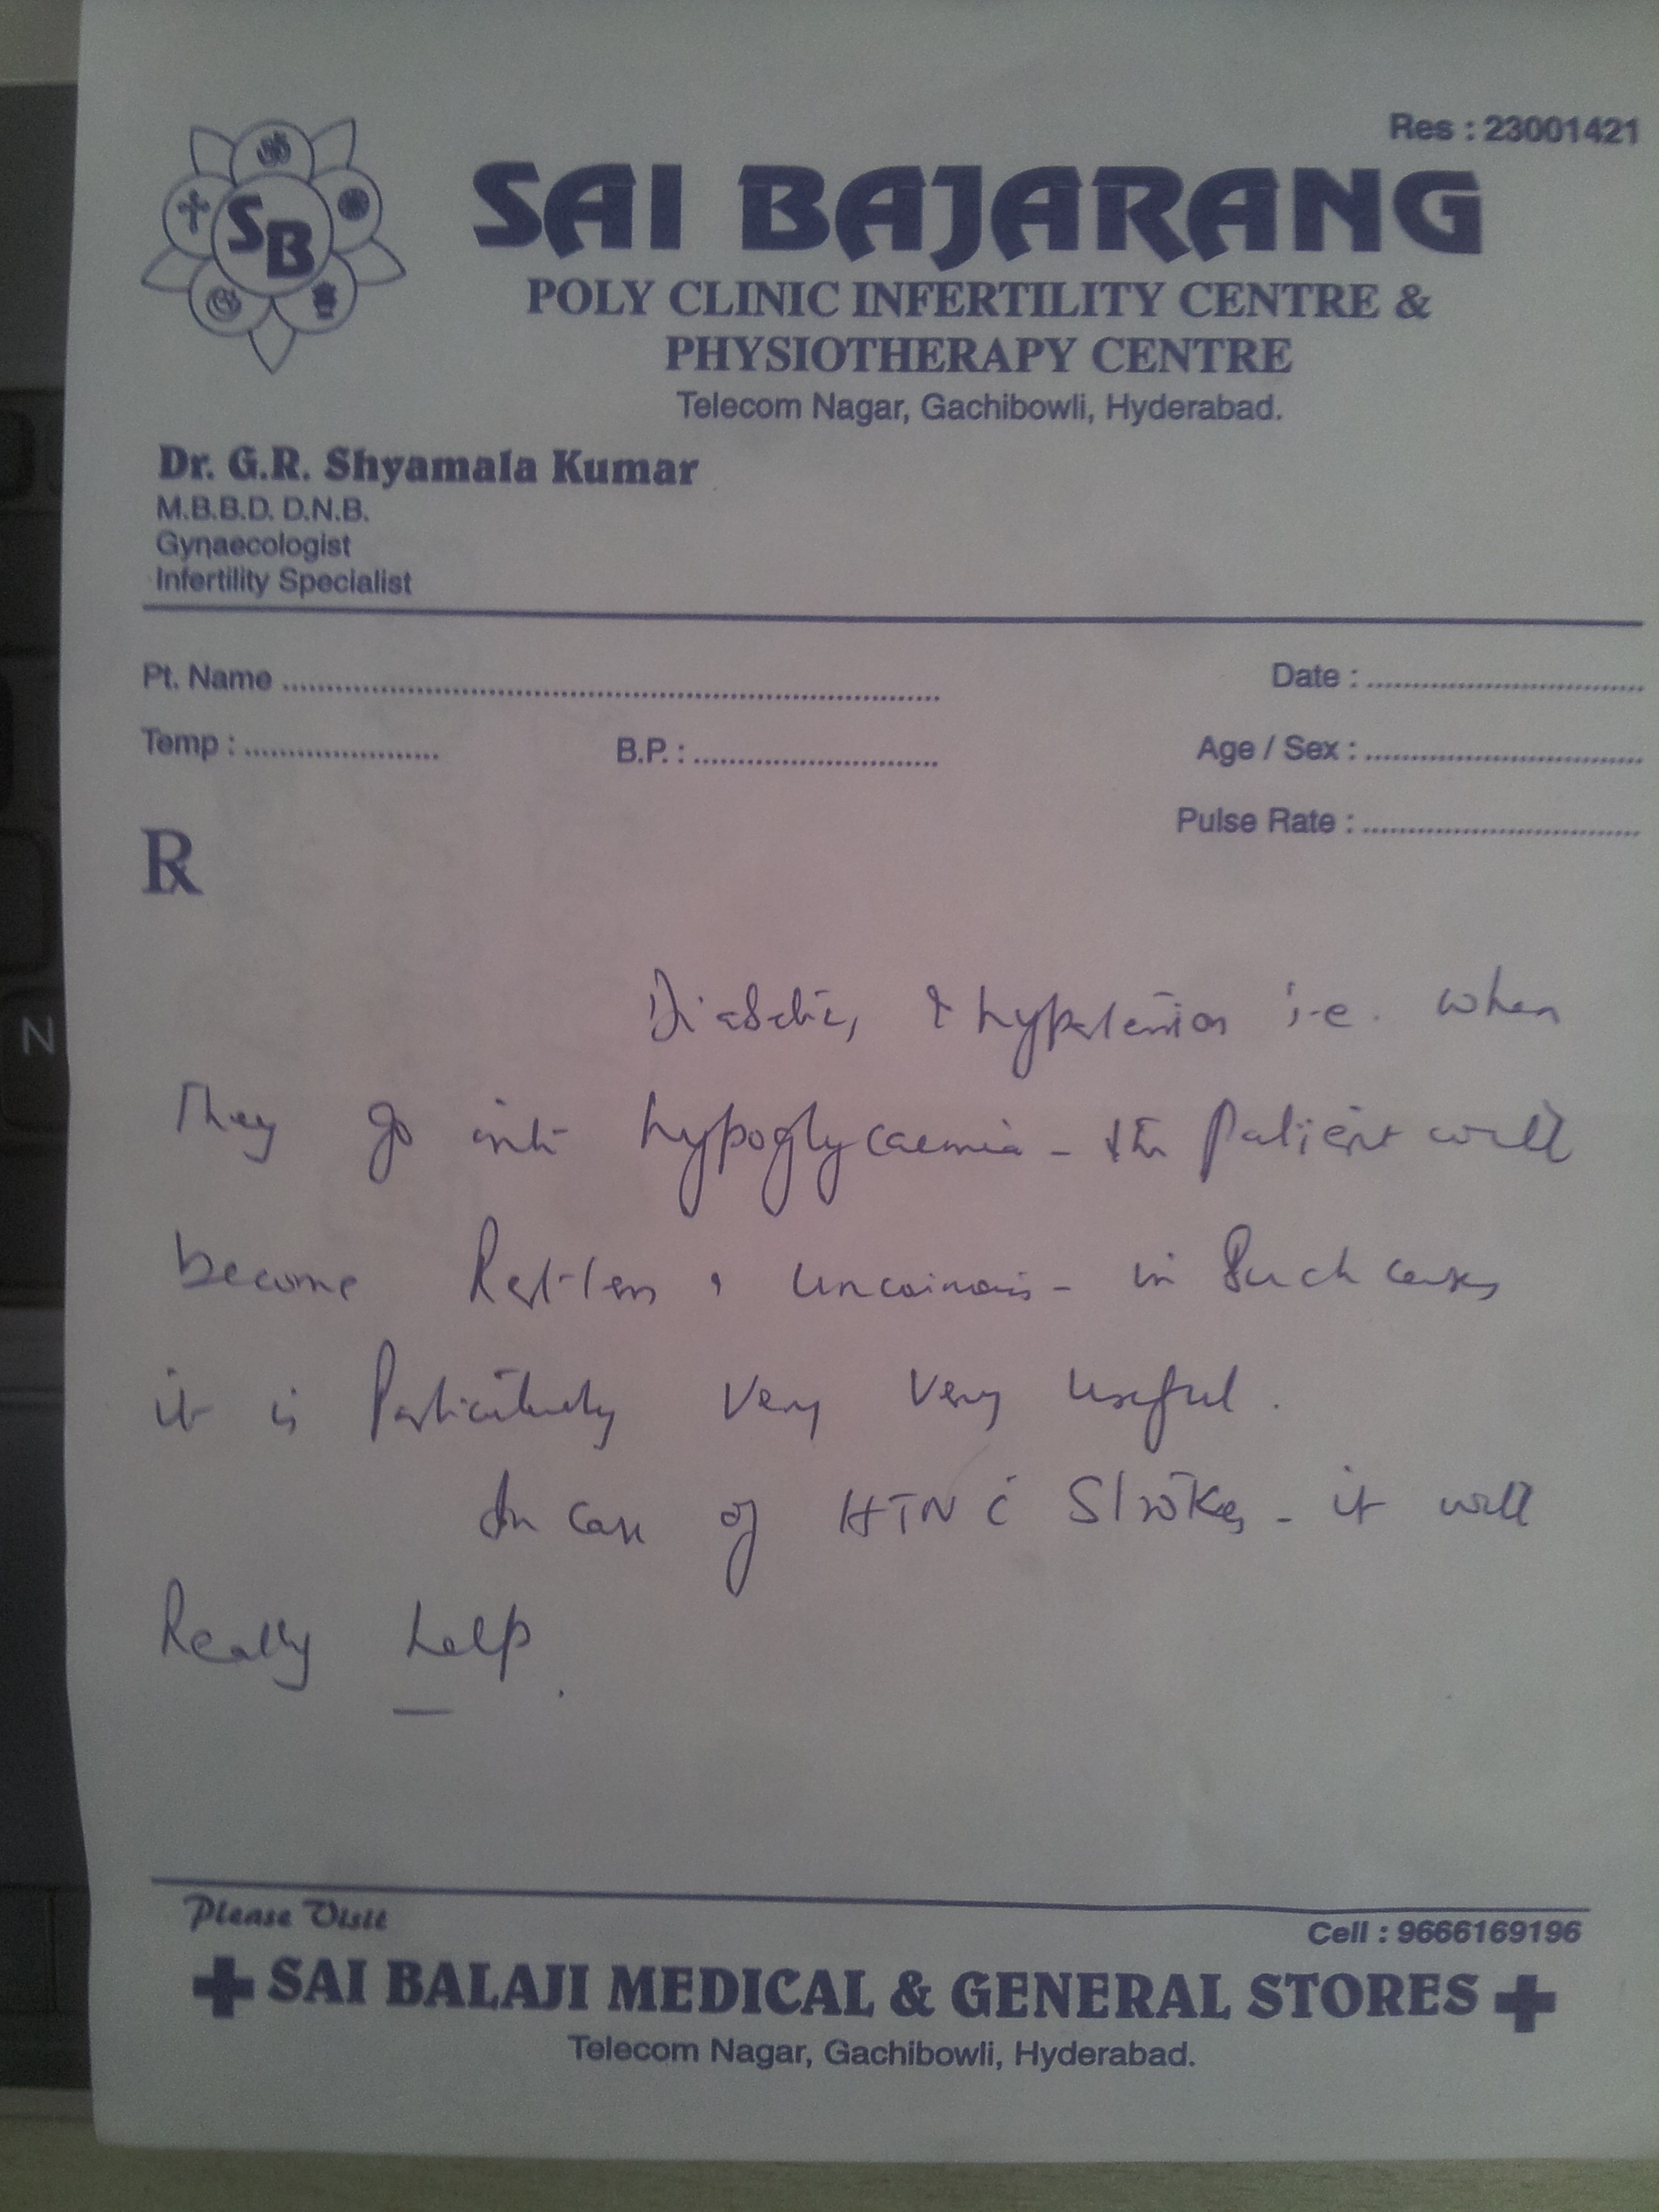 Res : 23001421
SB
SAI BAJARANG
POLY CLINIC INFERTILITY CENTRE &
PHYSIOTHERAPY CENTRE
Telecom Nagar, Gachibowli, Hyderabad.
Dr. G.R. Shyamala Kumar
M.B.B.D. D.N.B.
Gynaecologist
Infertility Specialist
Pt. Name
Date :
Temp :
B.P. :
Age / Sex :
Pulse Rate :
Rx
Diabetic, & hypertension i.e. when
They go into hypoglycaemia - the patient will
become Restless, unconcious - in Such cases
it is Particularly Very Very useful.
In case of HTN c̄ Strokes - it will
Really help.
Please Visit
Cell : 9666169196
SAI BALAJI MEDICAL & GENERAL STORES
Telecom Nagar, Gachibowli, Hyderabad.
N